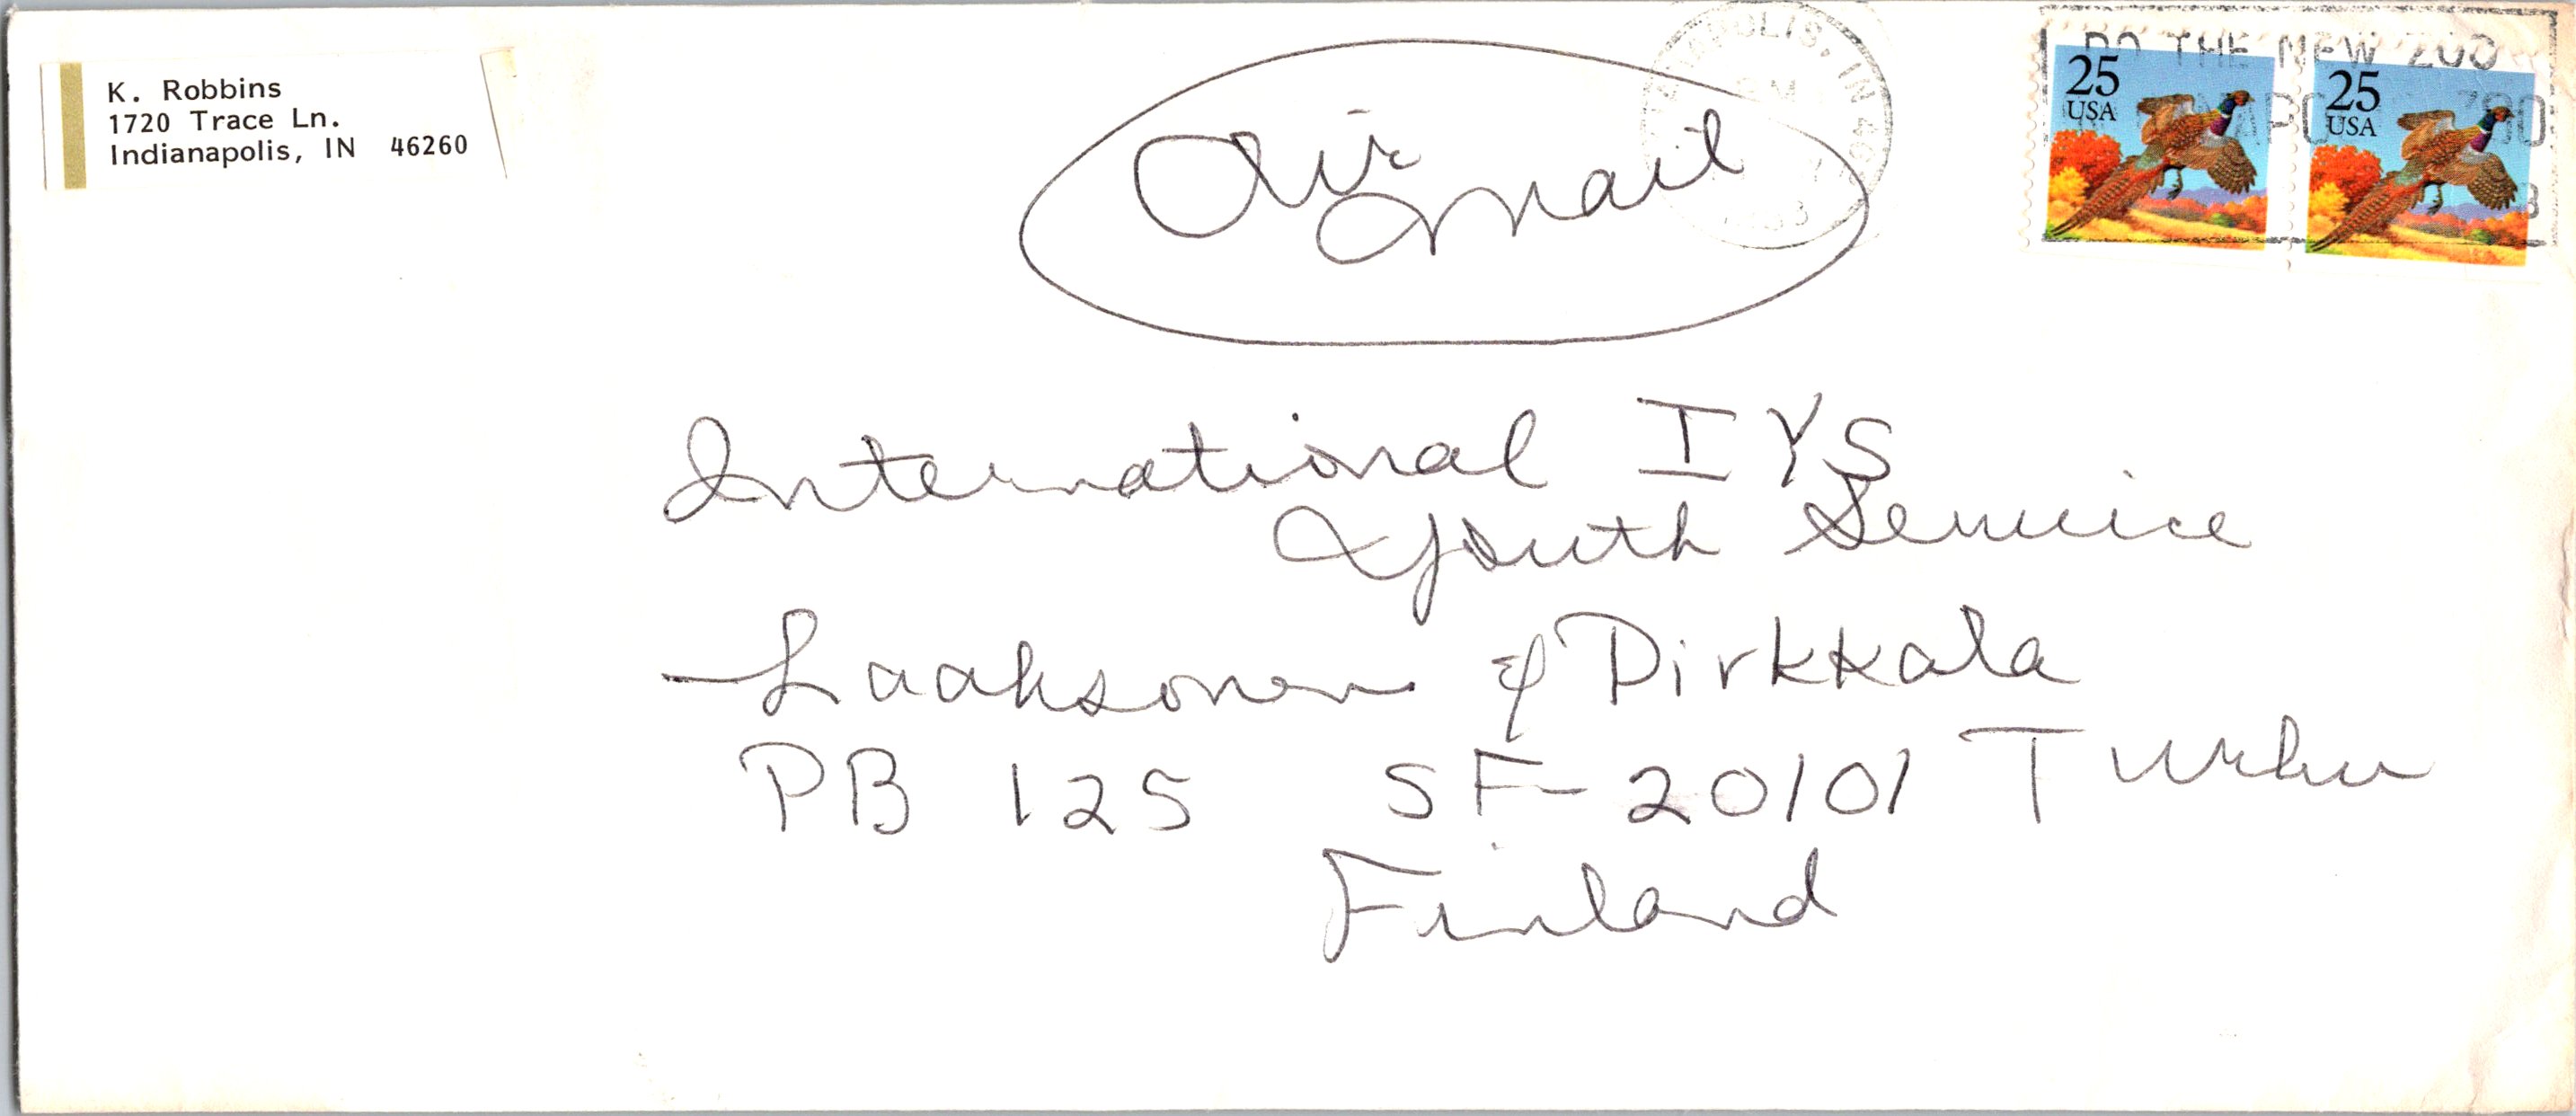 K. Robbins
1720 Trace Ln.
Indianapolis, IN 46260
Air
Mail
25
USA
25
USA
THE NEW ZOO
International IYS
Youth Service
Laaksonen & Pirkkala
PB 125 SF-20101 Turku
Finland